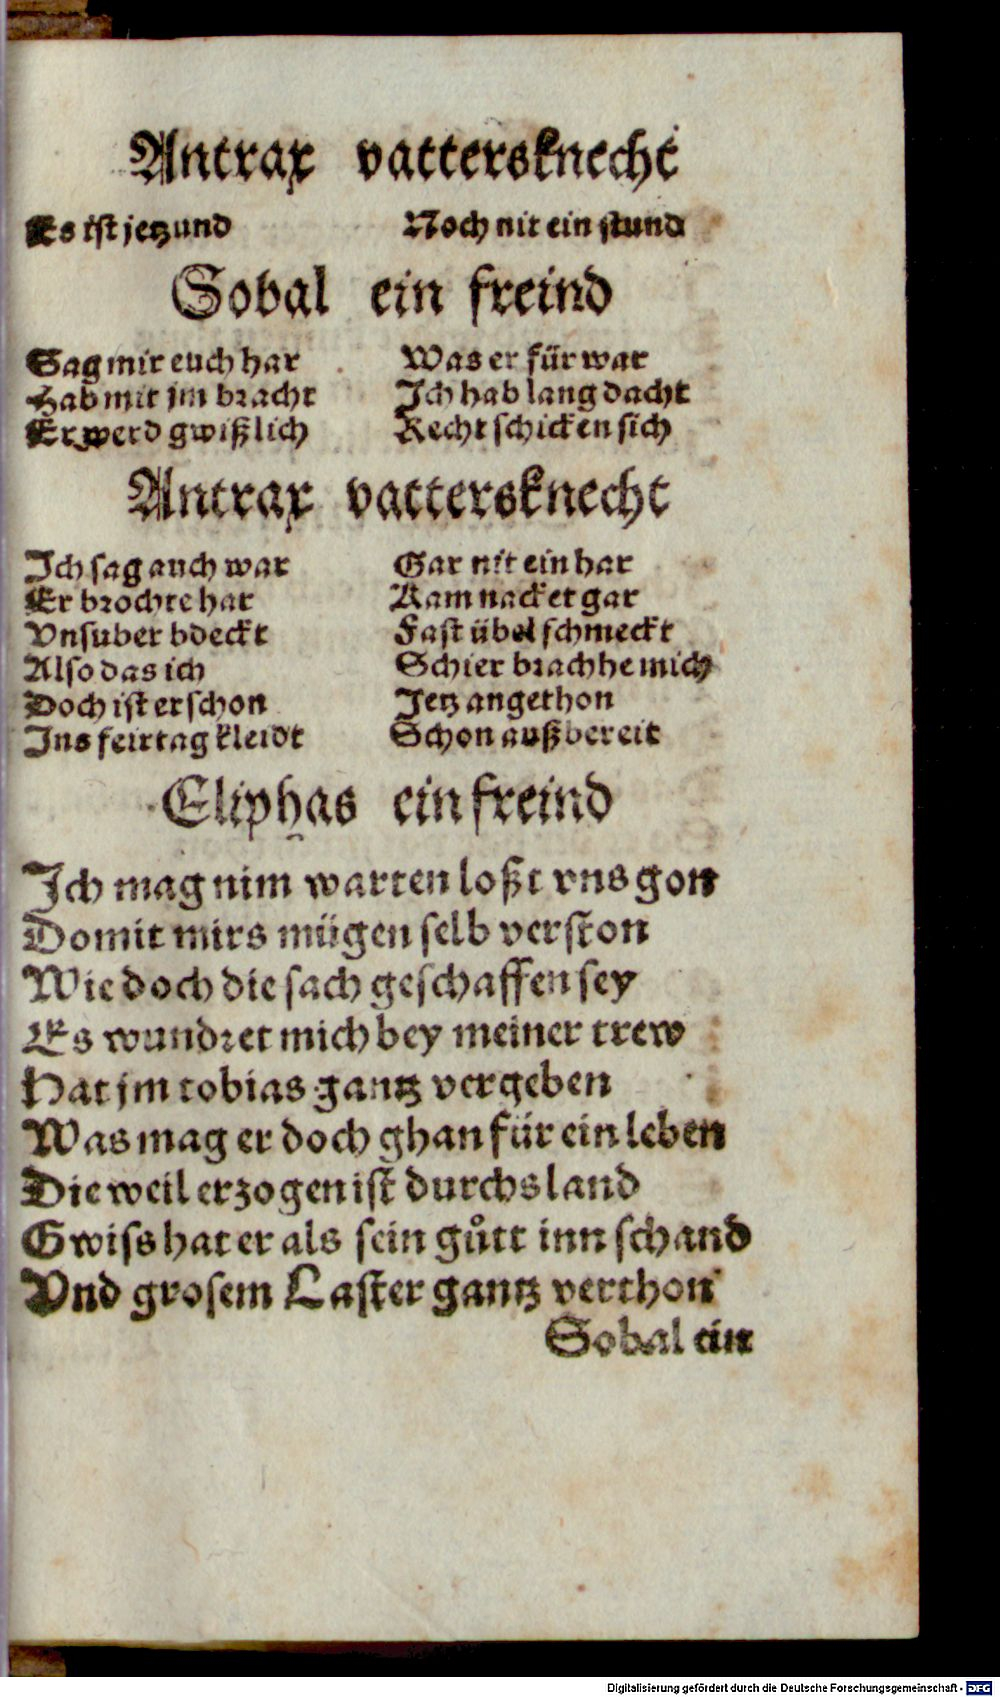 Antrax vattersknecht
Es ist jetzund Noch nit ein stund
Sobal ein freind
Sag mir euch har Was er für war
Hab mit jm bracht Ich hab lang dacht
Er werd gwißlich Recht schicken sich
Antrax vattersknecht
Ich sag auch war Gar nit ein har
Er brochte har Kam nacket gar
Vnsuber bdeckt Fast übel schmeckt
Also das ich Schier brachhe mich
Doch ist er schon Jetz angethon
Ins feirtag kleidt Schon außbereit
Eliphas ein freind
Ich mag nim warten loßt vns gon
Domit mirs mügen selb verston
Wie doch die sach geschaffen sey
Es wundret mich bey meiner trew
Hat jm tobias gantz vergeben
Was mag er doch ghan für ein leben
Die weil er zogen ist durchs land
Gwiss hat er als sein gůtt inn schand
Vnd grosem Laster gantz verthon
Sobal ein
Digitalisierung gefördert durch die Deutsche Forschungsgemeinschaft - DFG